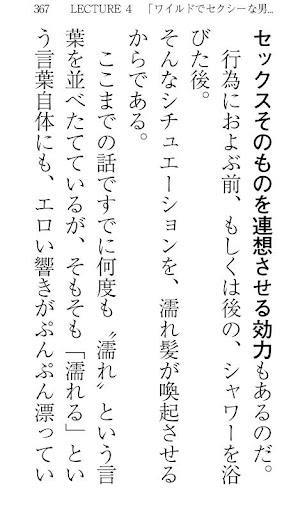 367 LECTURE 4 「ワイルドでセクシーな男...
セックスそのものを連想させる効力もあるのだ。
行為におよぶ前、もしくは後の、シャワーを浴
びた後。
そんなシチュエーションを、濡れ髪が喚起させる
からである。
ここまでの話ですでに何度も〝濡れ〟という言
葉を並べたてているが、そもそも「濡れる」とい
う言葉自体にも、エロい響きがぷんぷん漂ってい